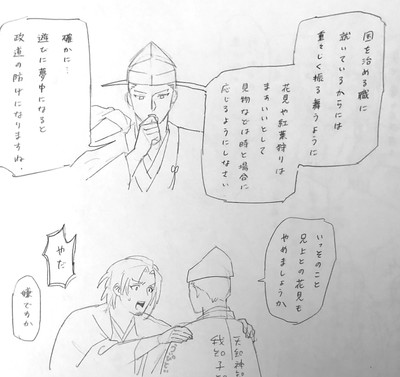 国を治める職に
就いているからには
重々しく振る舞うように
花見や紅葉狩りは
まあいいとして
見物などは時と場合に
応じるようにしなさい
確かに…
遊びに夢中になると
政道の妨げになりますね。
いっそのこと
兄上との花見も
やめましょうか
やだ